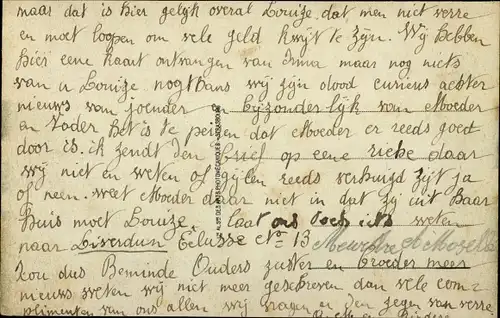 maar dat is hier gelijk overal Louize dat men niet verre
en moet loopen om vele geld kwijt te zijn. Wij hebben
hier eene kaart ontvangen van Irma maar nog niets
van u Louize nogthans wij zijn dood curieus achter
nieuws van joender en bijzonderlijk van Moeder
en Vader het is te peizen dat Moeder er reeds goed
door is. ik zendt den brief op eene rieke daar
wij niet en weten of gijlen reeds verhuizd zijt ja
of neen. weet Moeder daar niet in dat zij uit haar
Huis moet Louize laat ons toch iets weten
naar Liverdun Ecluse No 13 Meurthe et Moselle
zou dus Beminde Ouders zuster en broeder meer
nieuws weten wij niet meer geschreven dan vele com=
plimenten van ons allen wij vragen en den zegen van verre